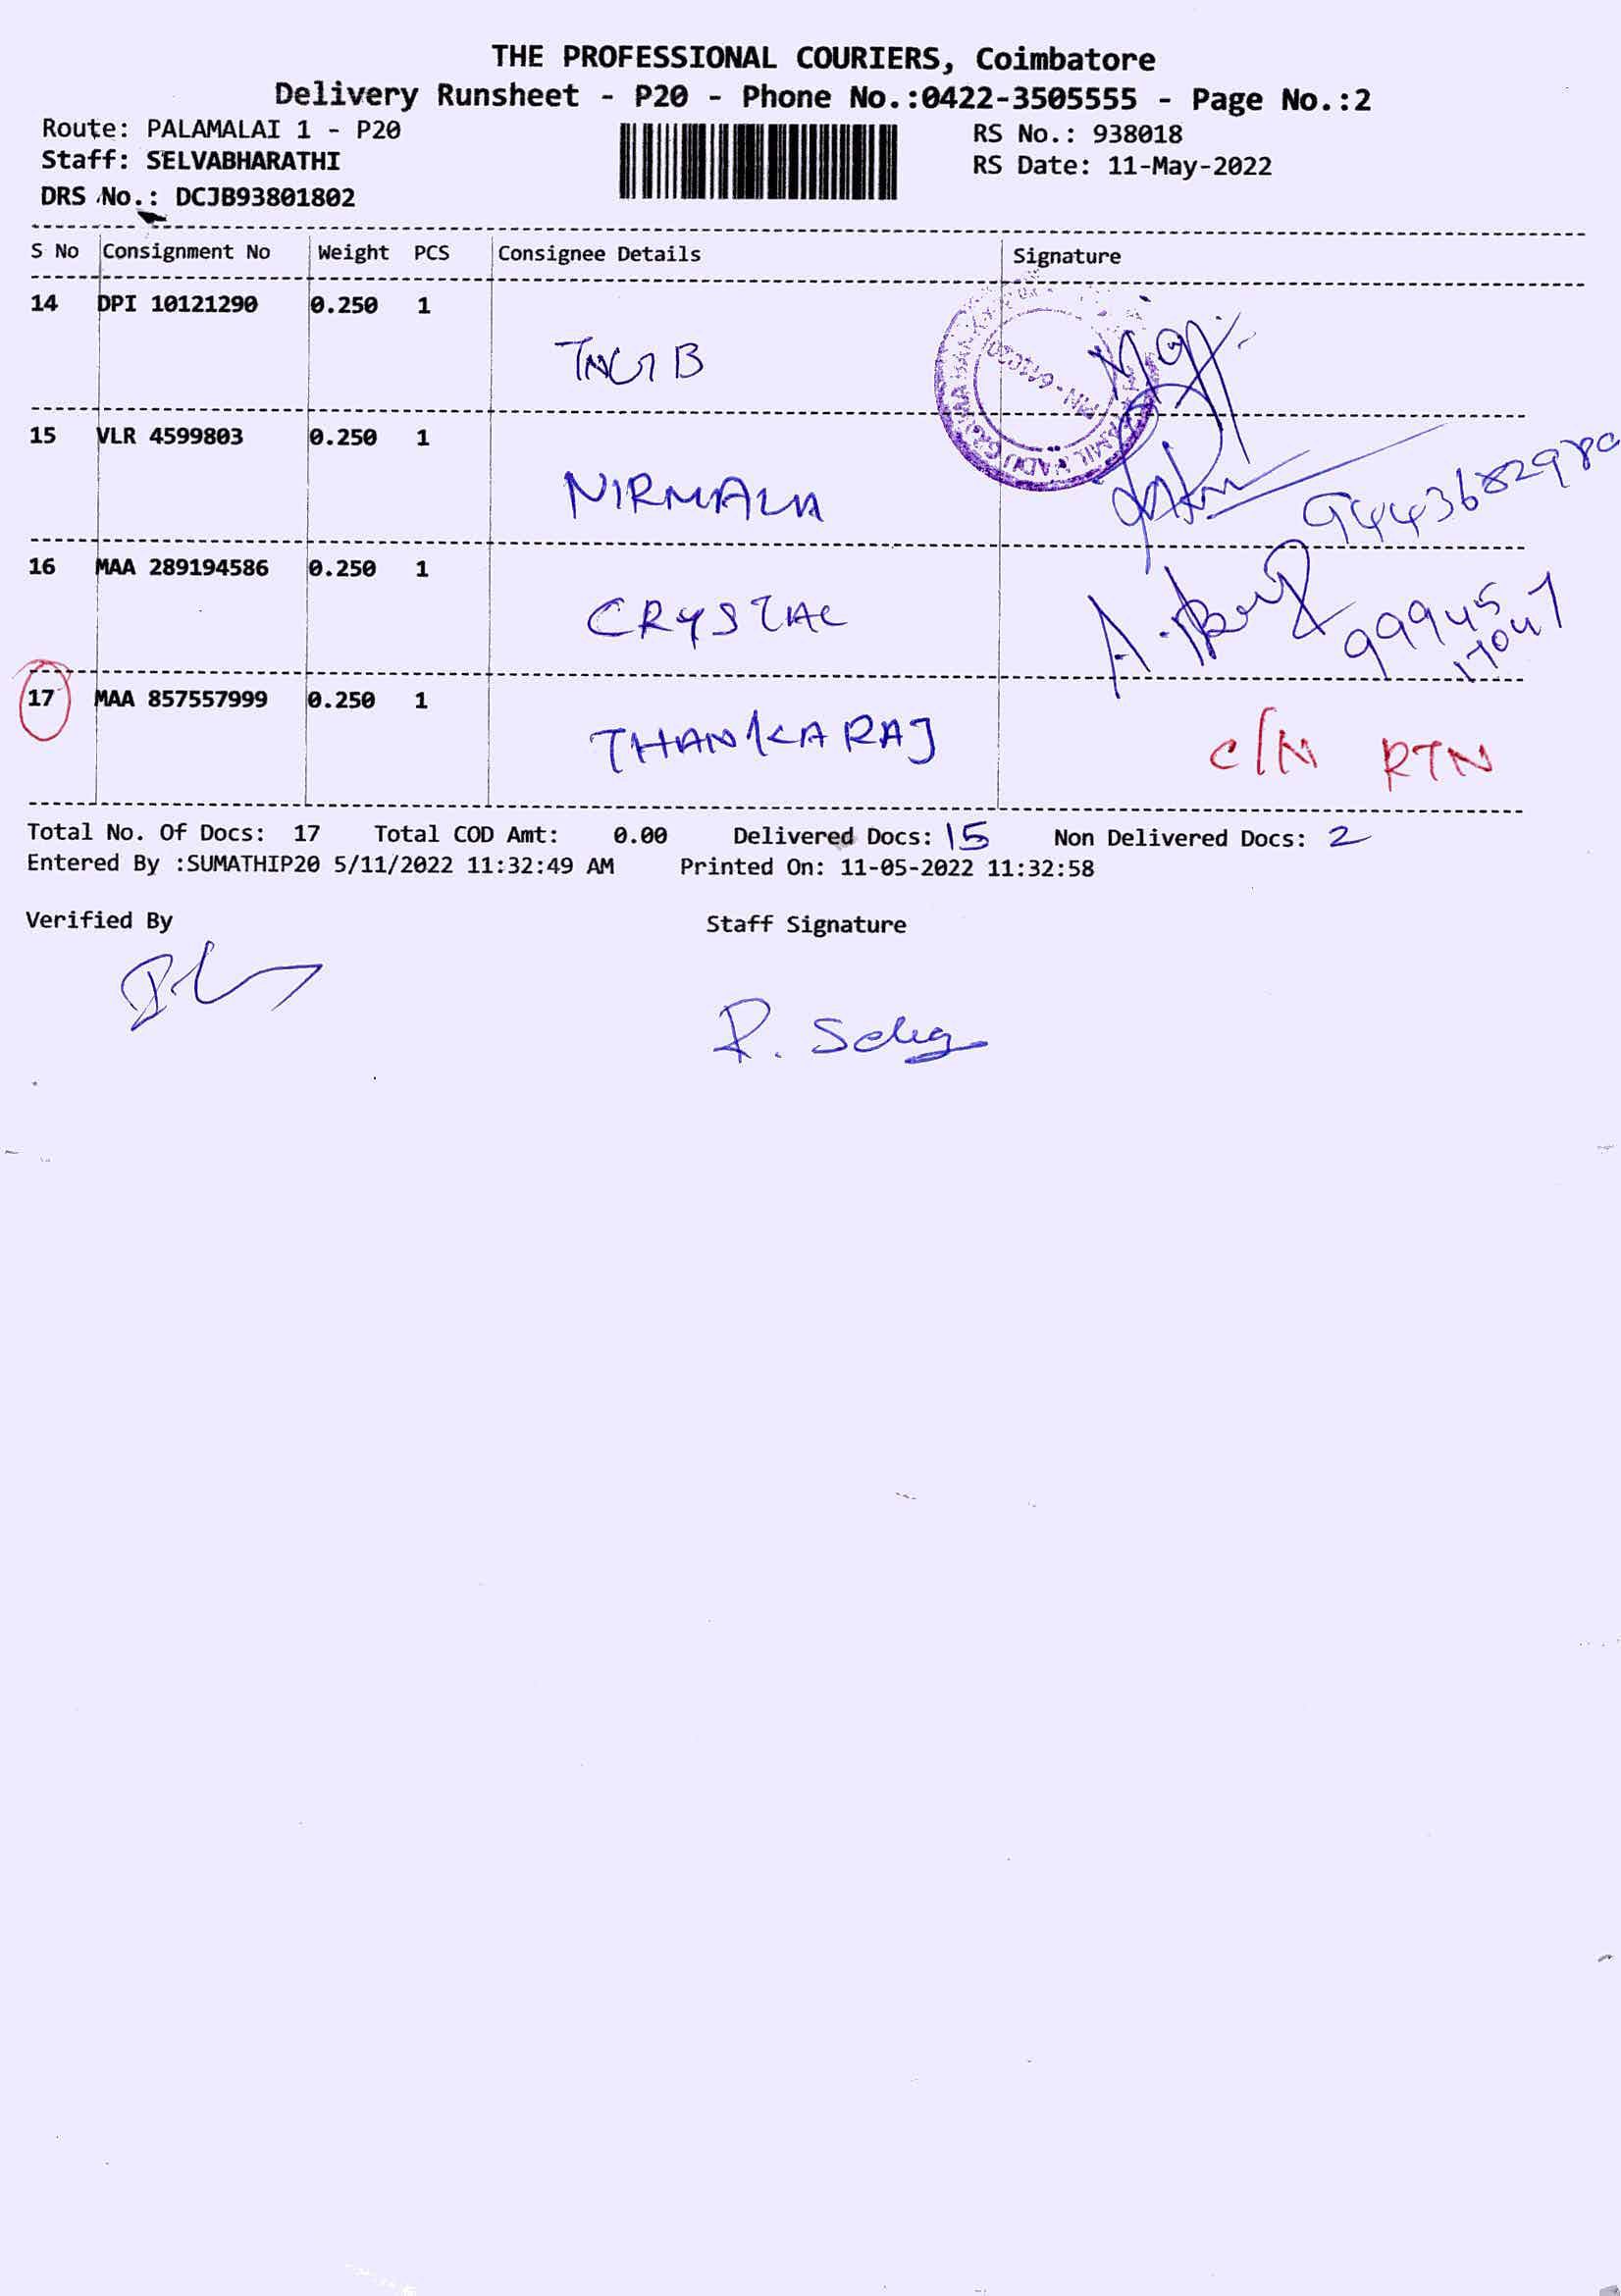 THE PROFESSIONAL COURIERS, Coimbatore
Delivery Runsheet - P20 - Phone No.:0422-3505555 - Page No.:2
Route: PALAMALAI 1 - P20 RS No.: 938018
Staff: SELVABHARATHI RS Date: 11-May-2022
DRS No.: DCJB93801802
S No Consignment No Weight PCS Consignee Details Signature
14 DPI 10121290 0.250 1
TNGB
15 VLR 4599803 0.250 1
NIRMALA
16 MAA 289194586 0.250 1
CRYSTAL
99945
17047
17 MAA 857557999 0.250 1
THANKARAJ C/N RTN
Total No. Of Docs: 17 Total COD Amt: 0.00 Delivered Docs: 15 Non Delivered Docs: 2
Entered By :SUMATHIP20 5/11/2022 11:32:49 AM Printed On: 11-05-2022 11:32:58
Verified By Staff Signature